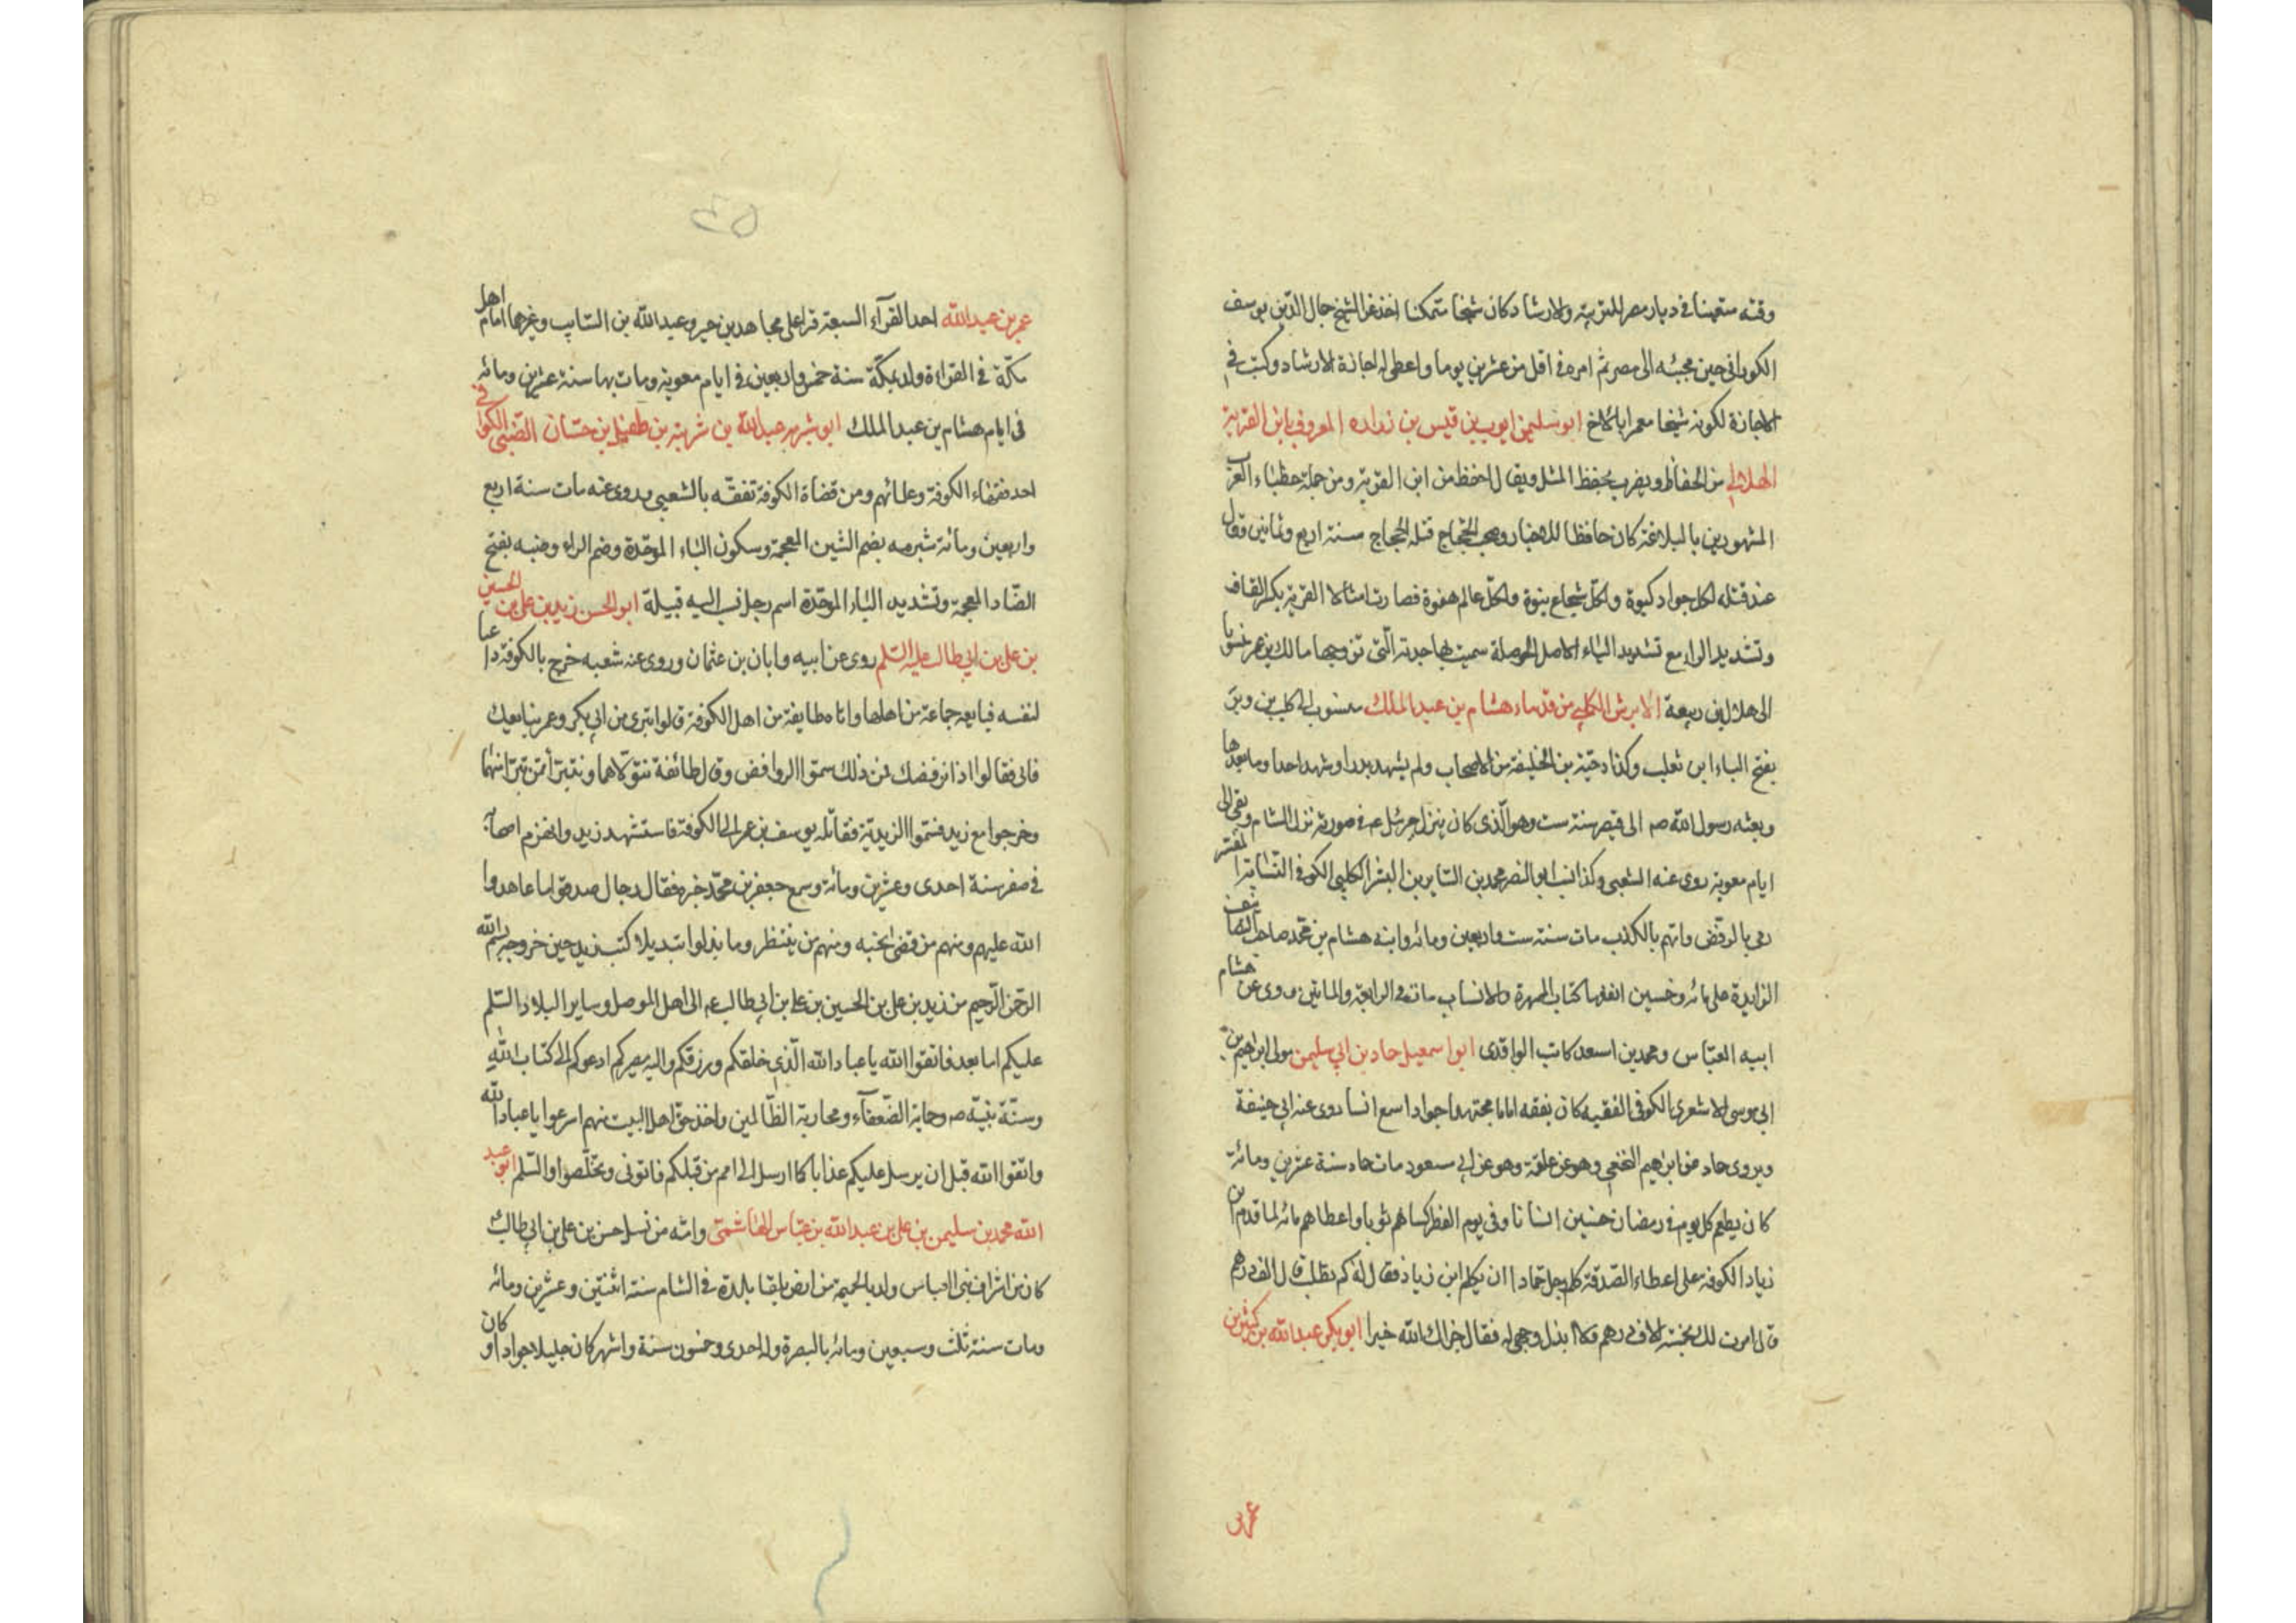 وقته متعينا في ديار مصر للتربية والارشاد كان شيخا متمكنا اخذ عن الشيخ جمال الدين يوسف
الكوراني حين مجيئه الى مصر ثم امره في اقل من عشرين يوما واعطى له اجازة الارشاد وكتب في
الاجازة لكونه شيخا معمرا بالاخ ابو سليمن ايوب بن قيس بن زراره المعروف بابن القرية
الهلالي من الحفاظ ويضرب بحفظ المثل ويقال احفظ من ابن القرية ومن جملة خطباء العرب
المشهورين بالبلاغة كان حافظا للاخبار وصحب الحجاج قتله الحجاج سنة اربع وثمانين وقال
عند قتله لكل جواد كبوة ولكل شجاع نبوة ولكل عالم هفوة فصارت امثالا القرية بكسر القاف
وتشديد الراء مع تشديد الياء الاصل الحوصلة سميت بها جدته التي تزوجها مالك بن عمر
الى هلال بن ربيعة الابرش الكلبي من قدماء هشام بن عبد الملك منسوب الى كلب بن وبرة
بفتح الباء ابن تعلب وكذا دحية بن الخليفة من الاصحاب ولم يشهد بدرا وشهد احدا وما بعدها
وبعثه رسول الله صم الى قيصر سنة ست وهو الذي كان ينزل جبرئيل عم في صورته نزل الشام وبقي الى
ايام معوية روى عنه الشعبي وكذا نسب ابو النصر محمد بن السايب بن البشر الكلبي الكوفي النسابة المفسر
رمي بالرفض واتهم بالكذب مات سنة ست واربعين ومائه وابنه هشام بن محمد صاحب التصانيف
الزايدة على مائه وخمسين انفعها كتاب الجمهرة والانساب مات في الرابعة والمايتين روى عن هشام
ابيه العباس ومحمد بن اسعد كاتب الواقدى ابو اسمعيل حماد بن ابي سليمن مولى ابراهيم بن
ابي موسى الاشعري الكوفي الفقيه كان بفقه اماما مجتهدا جوادا سمع انسا روى عنه ابي حنيفة
ويروى حماد عن ابراهيم النخعي وهو عن علقمة وهو عن ابي مسعود مات حماد سنة عشرين ومائة
كان يطعم كل يوم في رمضان خمسين انسانا وفي يوم الفطر كساهم ثوبا واعطاهم مائه لما قدم ابن
زياد الكوفة على اعطاء الصدقة كلم رجل حمادا ان يكلم ابن زياد فقال له كم تطلب قال الف درهم
قال امرت لك بخمسة الاف درهم ولا ابذل وجهي له فقال جزاك الله خيرا ابو بكر عبد الله بن كثير بن
عمر بن
عمر بن عبد الله احد القرآء السبعة قرا على مجاهد بن جبر وعبد الله بن السايب وغيرهما امام اهل
مكة في القراءة ولد بمكة سنة خمس واربعين في ايام معوية ومات بها سنة عشرين ومائه
في ايام هشام بن عبد الملك ابو شبرمه عبد الله بن شبرمة بن طفيل بن حسان الضبي الكوفي
احد فقهاء الكوفة وعلمائهم ومن قضاة الكوفة تفقه بالشعبي وروى عنه مات سنة اربع
واربعين ومائة شبرمه بضم الشين المعجمة وسكون الباء الموحدة وضم الراء وضبه بفتح
الضاد المعجمة وتشديد الباء الموحدة اسم رجل نسب اليه قبيلة ابو الحسن زيد بن علي بن الحسين
بن علي بن ابي طالب عليه السلم روى عن ابيه وابان بن عثمان وروى عنه شعبه خرج بالكوفة داعيا
لنفسه فبايعه جماعة من اهلها واتاه طايفة من اهل الكوفة قالوا تبرى من ابي بكر وعمر نبايعك
فابى فقالوا اذا نرفضك فمن ذلك سموا الروافض وقال طائفة نتولاهما ونتبرأ ممن تبرأ منهما
وخرجوا مع زيد فسموا الزيدية فقاتله يوسف بن عمر الى الكوفة فاستشهد زيد وانهزم اصحابه
في صفر سنة احدى وعشرين ومائة وسمع جعفر بن محمد خبره فقال رجال صدقوا ما عاهدوا
الله عليهم ومنهم من قضى نحبه ومنهم من ينتظر وما بدلوا تبديلا كتب زيد حين خروجه بسم الله
الرحمن الرحيم من زيد بن علي بن الحسين بن علي بن ابي طالب عم الى اهل الموصل وساير البلاد السلم
عليكم اما بعد فاتقوا الله يا عباد الله الذي خلقكم ورزقكم واليه مصيركم ادعوكم الى كتاب الله
وسنة نبيه صم وحماية الضعفآء ومحاربة الظالمين واخذ حق اهل البيت منهم اسرعوا يا عباد الله
واتقوا الله قبل ان يرسل عليكم عذابا كما ارسل الى امم من قبلكم فاتونى وتخلصوا والسلم ابو عبد
الله محمد بن سليمن بن علي بن عبد الله بن عباس الهاشمي وامه من نسل حسن بن علي بن ابي طالب
كان من اشراف بني العباس ولد بالحميمة من ارض بلقا بلدة في الشام سنة اثنتين وعشرين ومائه
ومات سنة ثلث وسبعين ومائه بالبصرة وله احدى وخمسون سنة واشهر كان جليلا جوادا وكان